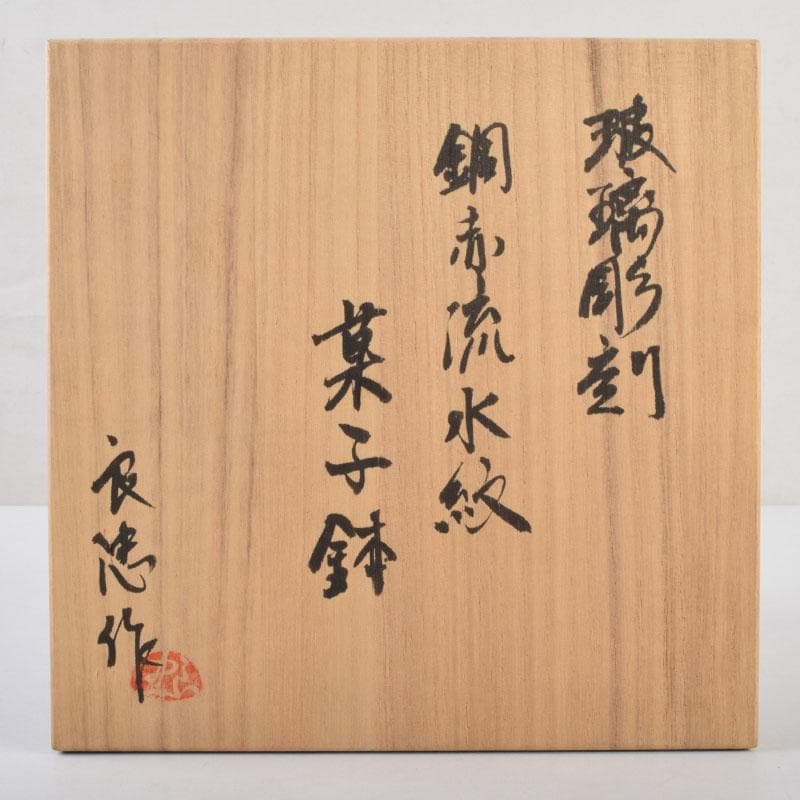 玻璃彫刻
銅赤流水紋
菓子鉢
良忠作